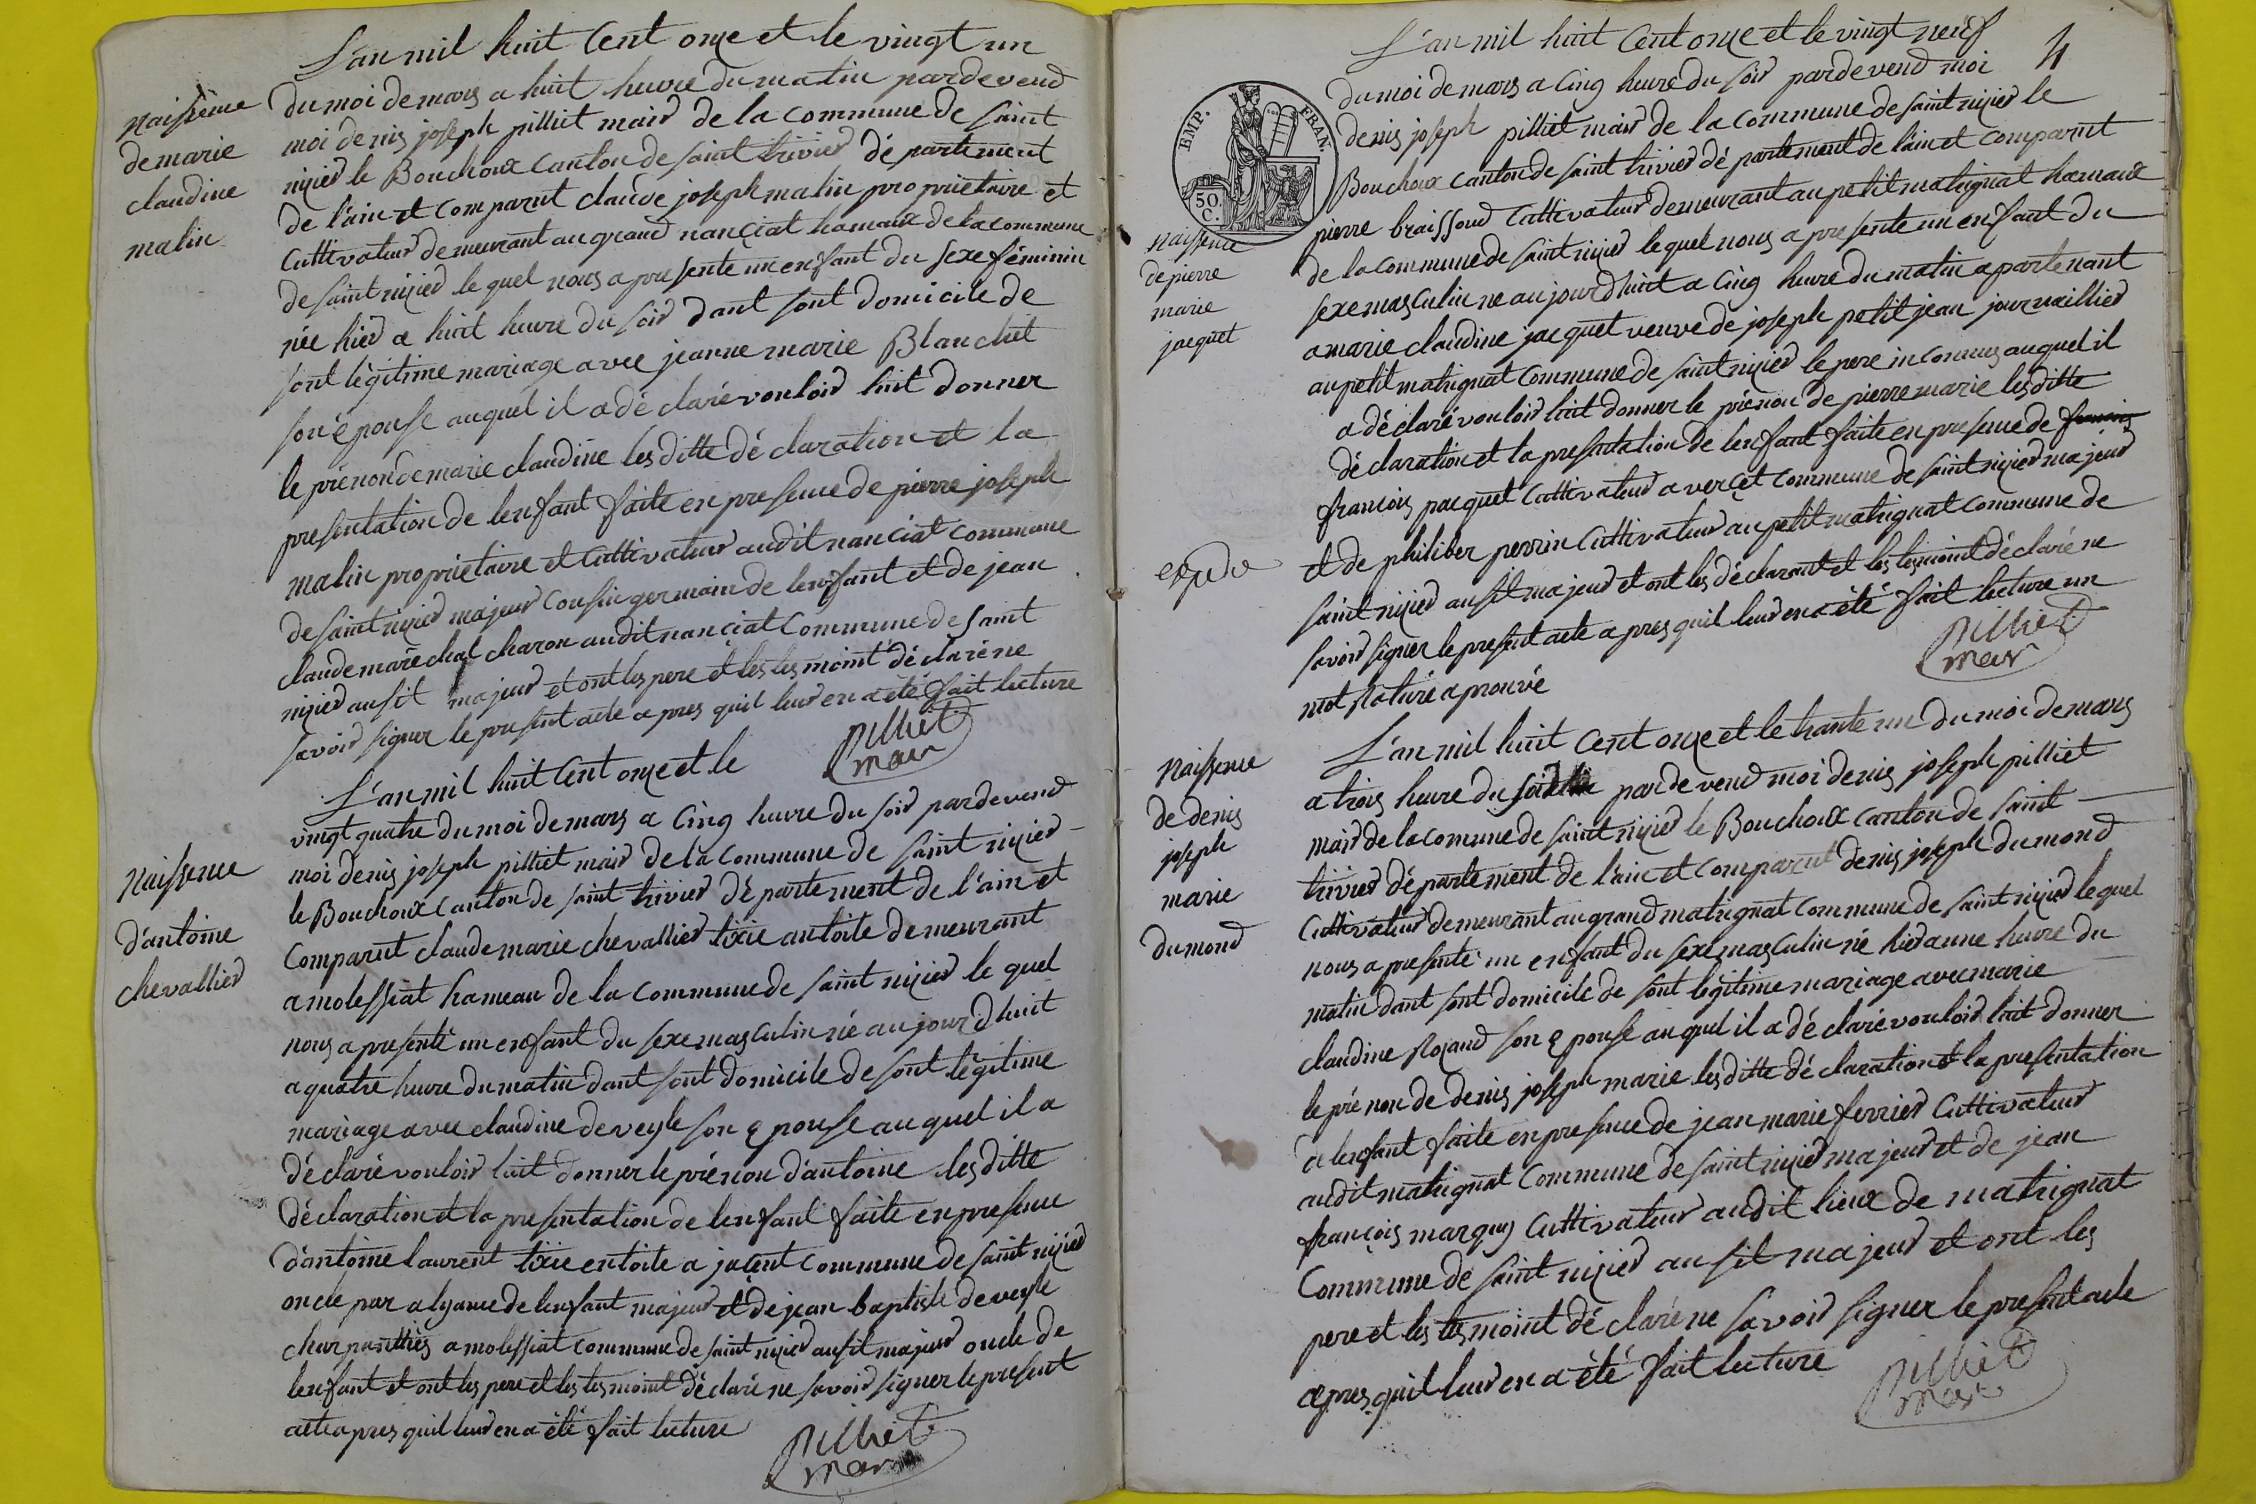 L'an mil huit Cent onze et le vingt un
du moi de mars a huit heure du matin pardevend
moi denis joseph pilliet mair de la commune de saint
nizier le Bouchoux canton de saint trivier département
de l'ain et comparut claude joseph malin propriétaire et
Cultivateur demeurant au grand nanciat hamaux de la commune
de saint nizier le quel nous a presente un enfant du sexe féminin
née hier a huit heure du soir dant sont domicile de
sont légitime mariage avec jeanne marie Blanchet
son épouse auquel il a déclaré vouloir luit donner
le prénon de marie claudine les ditte déclaration et la
presentation de lenfant faite en presence de pierre joseph
malin propriétaire et Cultivateur audit nanciat commune
de saint nizier majeur cousin germain de lenfant et de jean
claude maréchal charon audit nanciat Commune de saint
nizier ausit majeur et ont les pere et les tesmoint déclaré ne
savoir signer le present acte apres quil leur en a été fait lecture
pilliet
mair
Naissence
de marie
claudine
malin
L'an mil huit Cent onze et le
vingt quatre du moi de mars a Cinq heure du soir pardevend
moi denis joseph pilliet mair de la commune de saint nizier
le Bouchoux canton de saint trivier département de l'ain et
Comparut claude marie chevallier tixie en toile demeurant
a molessiat hameau de la commune de saint nizier le quel
nous a presenté un enfant du sexe masculin né aujourd huit
a quatre heure du matin dant sont domicile de sont légitime
mariage avec claudine deveyle son épouse auquel il a
déclaré vouloir luit donner le prénon d'antoine les ditte
déclaration et la presentation de lenfant faite en presence
d'antoine laurent tixie en toile a jacent commune de saint nizier
oncle par alyance de lenfant majeur et de jean baptiste deveyle
charpanttiés a molessiat commune de saint nizier ausit majeur oncle de
lenfant et ont les pere et les tesmoint déclaré ne savoir signer le present
acte apres quil leur en a été fait lecture
pilliet
mair
Naissence
d'antoine
chevallier
4
L'an mil huit Cent onze et le vingt neuf
du moi de mars a Cinq heure du soir pardevend moi
denis joseph pilliet mair de la commune de saint nizier le
Bouchoux canton de saint trivier département de l'ain et comparut
pierre braissoud Cultivateur demeurant au petit matrignat hamaux
de la commune de saint nizier lequel nous a presente un enfant du
sexe masculin ne aujourdhuit a Cinq heure du matin apartenant
a marie claudine jacquet veuve de joseph petit jean journaillier
au petit matrignat commune de saint nizier le pere inconnus auquel il
a déclaré vouloir luit donner le prénon de pierre marie les ditte
déclaration et la presentation de lenfant faite en presence de francois
francois pacquet Cultivateur a verçet commune de saint nizier majeur
et de philiber perrin Cultivateur au petit matrignat commune de
saint nizier ausit majeur et ont les déclarant et les tesmoint déclaré ne
savoir signer le present acte apres quil leur en a été fait lecture un
mot raturé aprouvé
pilliet
mair
EMP. FRAN.
50.
C.
Naissence
de pierre
marie
jacquet
L'an mil huit Cent onze et le trante un du moi de mars
a trois heure du soir pardevend moi denis joseph pilliet
mair de la comune de saint nizier le Bouchoux canton de saint
trivier département de l'ain et comparut denis joseph dumond
Cultivateur demeurant au grand matrignat commune de saint nizier lequel
nous a presenté un enfant du sexe masculin né hier a une heure du
matin dant sont domicile de sont légitime mariage avec marie
claudine Rojand son épouse auquel il a déclaré vouloir luit donner
le prénon de denis joseph marie les ditte déclaration et la presentation
de lenfant faite en presence de jean marie ferrier Cultivateur
audit matrignat commune de saint nizier majeur et de jean
françois marquis Cultivateur audit lieux de matrignat
Commune de saint nizier ausit majeur et ont les
pere et les tesmoint déclaré ne savoir signer le present acte
apres quil leur en a été fait lecture
pilliet
mair
Naissence
de denis
joseph
marie
dumond